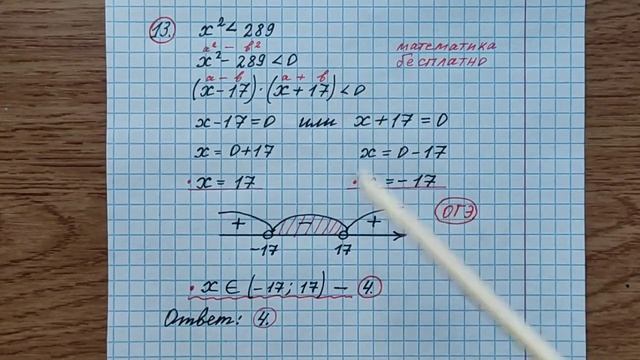 13. x² < 289
a² - b²
x² - 289 < 0
математика
бесплатно
a - b a + b
(x - 17) · (x + 17) < 0
x - 17 = 0 или x + 17 = 0
x = 0 + 17 x = 0 - 17
· x = 17 · = - 17
ОГЭ
+ - +
-17 17
· x ∈ (-17; 17) — 4.
Ответ: 4.